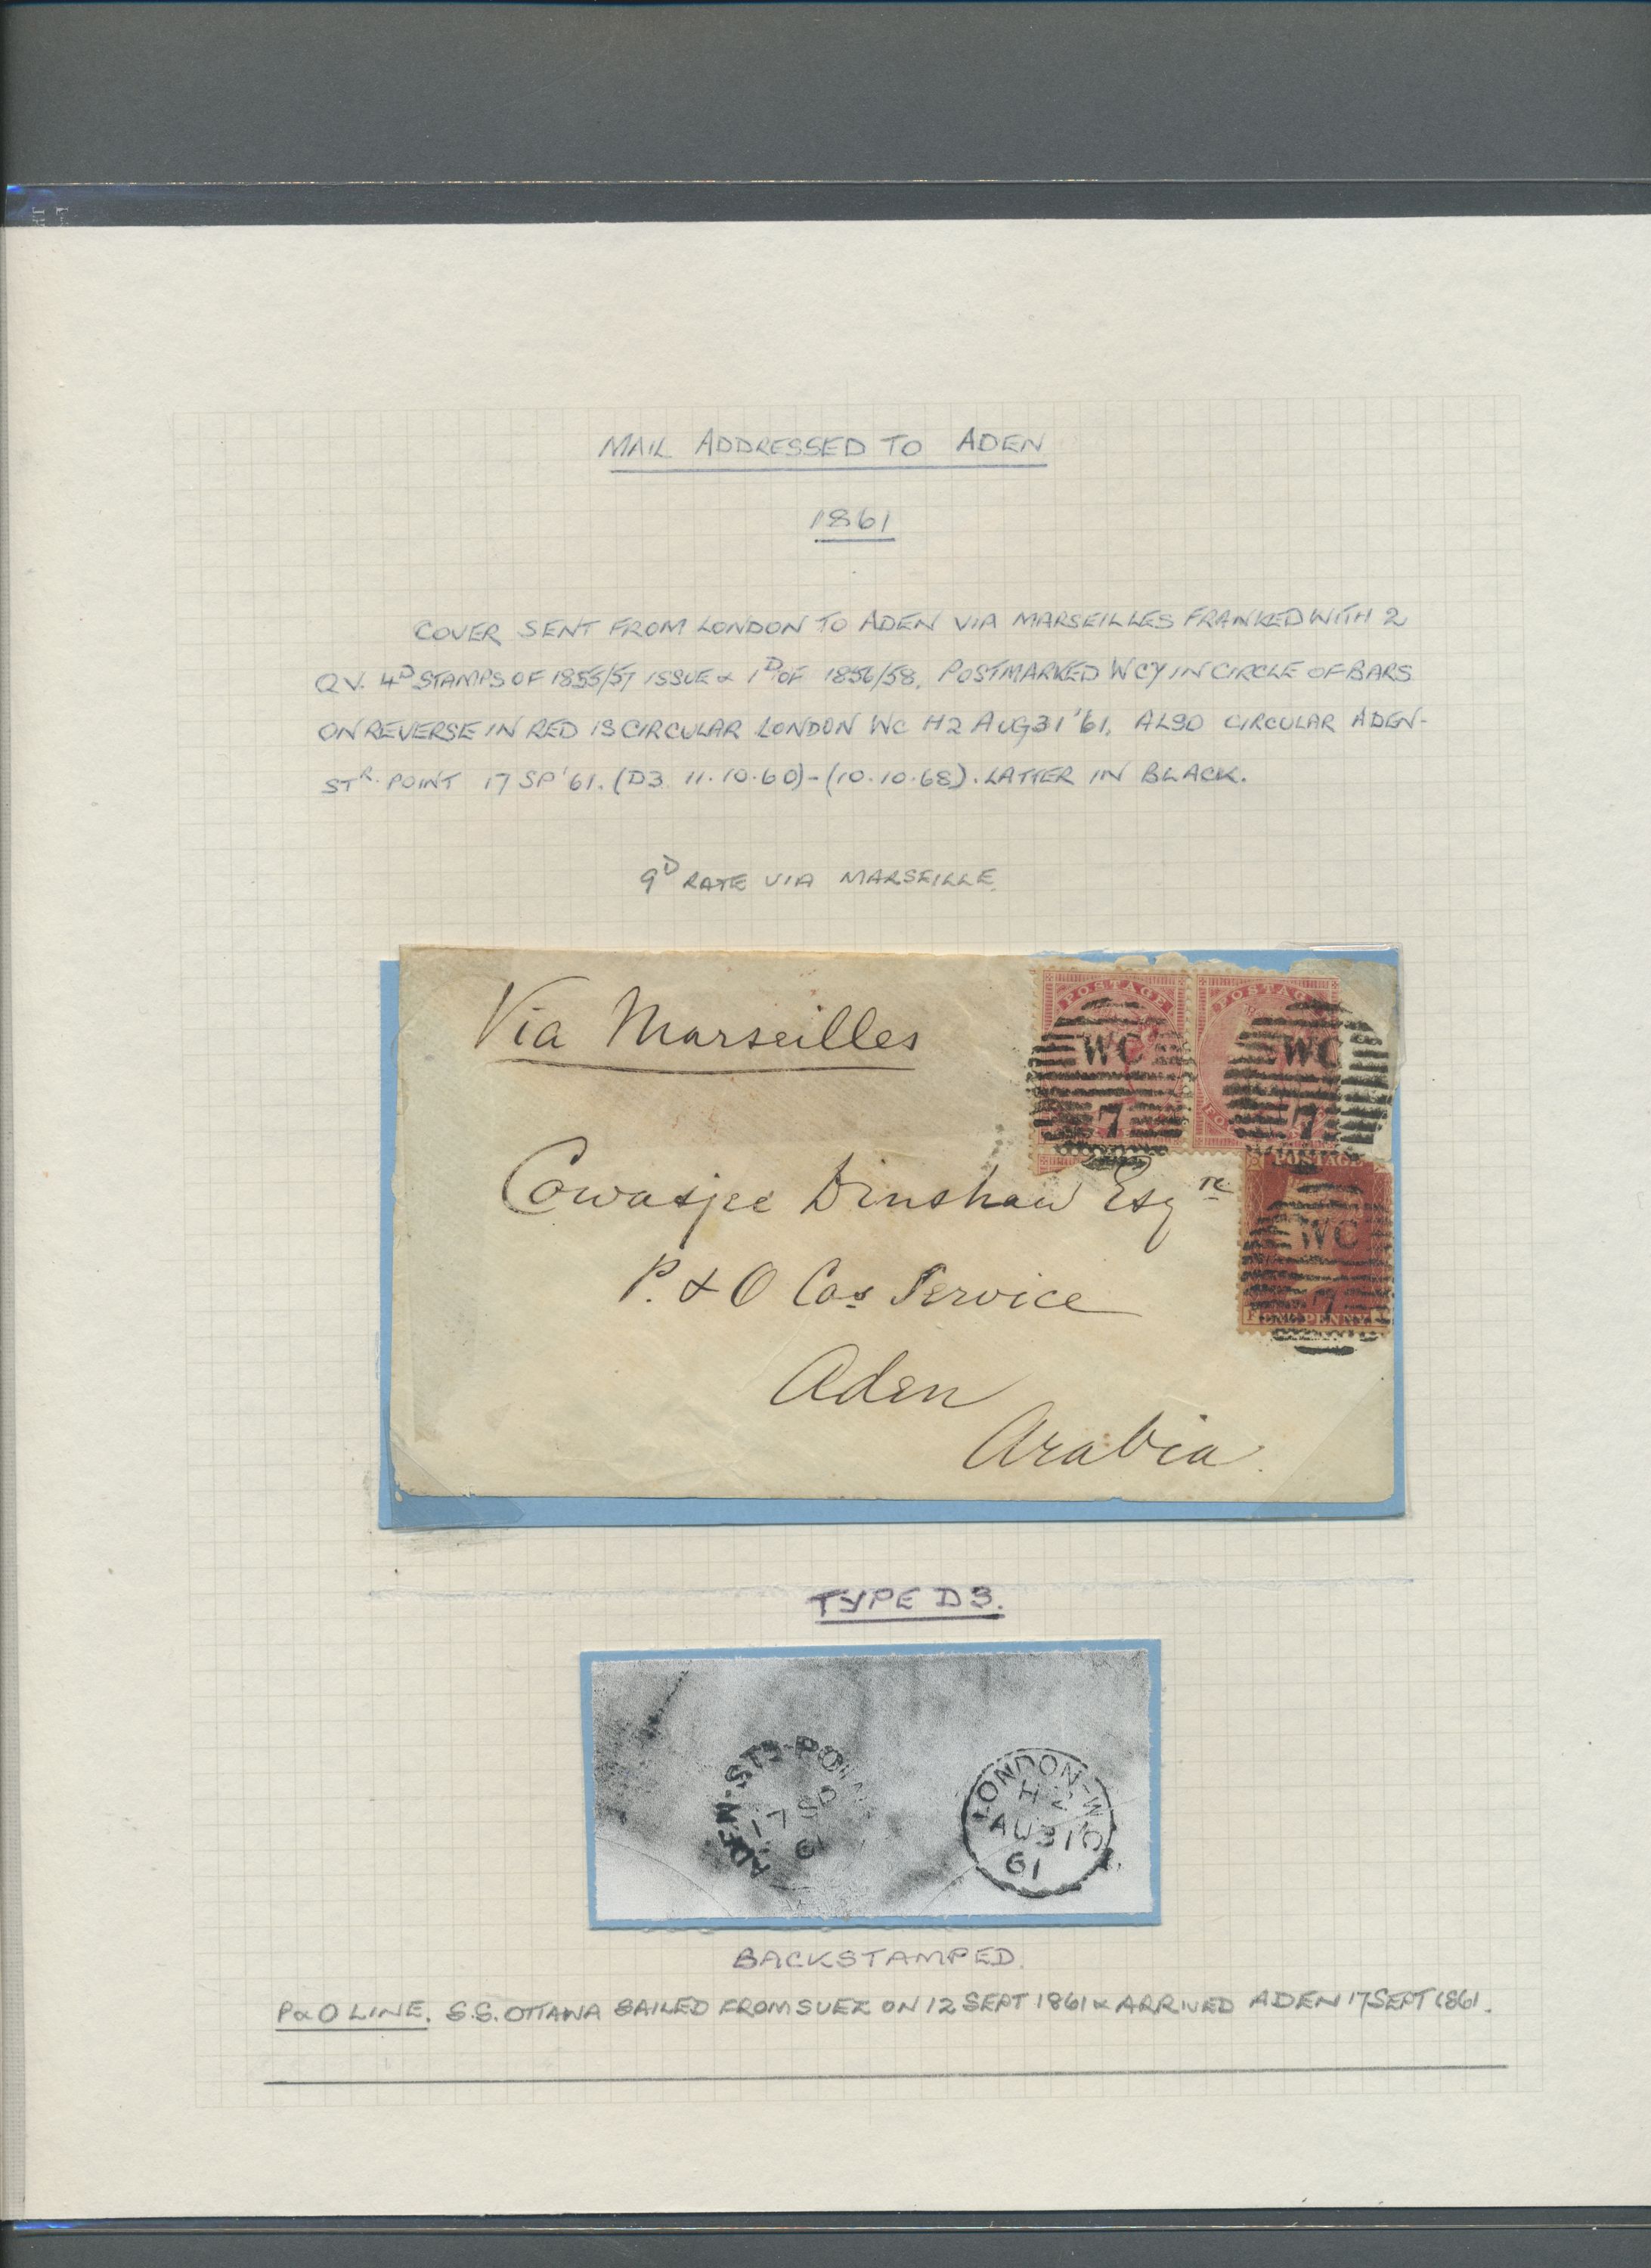 MAIL ADDRESSED TO ADEN
1861
COVER SENT FROM LONDON TO ADEN VIA MARSEILLES FRANKED WITH 2
QV. 4D STAMPS OF 1855/57 ISSUE & 1D OF 1856/58. POSTMARKED WC7 IN CIRCLE OF BARS
ON REVERSE IN RED IS CIRCULAR LONDON WC H2 AUG 31 '61. ALSO CIRCULAR ADEN-
STR. POINT 17 SP '61. (D3 11.10.60)-(10.10.68). LATTER IN BLACK.
9D RATE VIA MARSEILLE.
Via Marseilles
POSTAGE
POSTAGE
WC
7
WC
7
Cowasjee Dinshaw Esqre
POSTAGE
WC
7
ONE PENNY
P. & O Cos Service
Aden
Arabia.
TYPE D3.
ADEN-STR-POIN
17 SP
61
LONDON-WC
H 2
AU 31
61
BACKSTAMPED.
P&O LINE. S.S. OTTAWA SAILED FROM SUEZ ON 12 SEPT 1861 & ARRIVED ADEN 17 SEPT 1861.